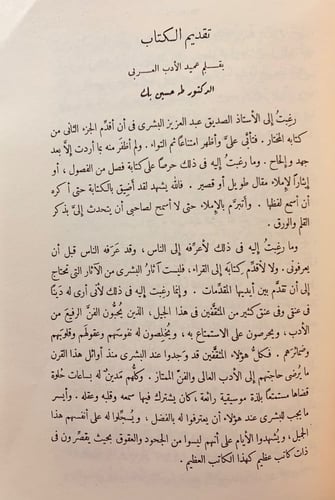 تقديم الكتاب
بقلم عميد الأدب العربى
الدكتور طه حسين بك
رغبتُ إلى الأستاذ الصديق عبد العزيز البشرى فى أن أقدّم الجزء الثانى من
كتابه المختار. فتأبَّى علىَّ وأظهر امتناعًا ثم التواء. ولم أظفر منه بما أردت إلّا بعد
جهد وإلحاح. وما رغبتُ إليه فى ذلك حرصًا على كتابة فصل من الفصول، أو
إيثارًا لإملاء مقال طويل أو قصير. فالله يشهد لقد أضيق بالكتابة حتى أكره
أن أسمع لفظها. وأتبرّم بالإملاء حتى لا أسمح لصاحبى أن يتحدث إلىَّ بذكر
القلم والورق.
وما رغبت إليه فى ذلك لأعرّفه إلى الناس، وقد عَرَفه الناس قبل أن
يعرفونى. ولا لأقدّم كتابَه إلى القراء، فليست آثارُ البشرى من الآثار التى تحتاج
إلى أن تقدم بين أيديها المقدّمات. وإنما رغبت إليه فى ذلك لأنى أرى له دَينًا
فى عنقى وفى عنق كثير من المثقّفين فى هذا الجيل، الذين يُحبُّون الفنَّ الرفيع من
الأدب، ويحرصون على الاستمتاع به، ويُخلِصون له نفوسَهم وعقولَهم وقلوبَهم
وضمائرَهم. فكلُّ هؤلاء المثقّفين قد وَجدوا عند البشرى منذ أوائل هذا القرن
ما يُرضى حاجتهم إلى الأدب العالى والفنّ الممتاز. وكلُّهم مَدينٌ له بساعات حُلوة
قضاها مستمتعًا بلذة موسيقية رائعة، كان يشترك فيها سمعه وقلبه وعقله. وأيسر
ما يجب للبشرى عند هؤلاء أن يعترفوا له بالفضل، ويسجّلوا له على أنفسهم هذا
الجميل، ويُشهدوا الأيام على أنهم ليسوا من الجحود والعقوق بحيث يقصّرون فى
ذات كاتب عظيم كهذا الكاتب العظيم.